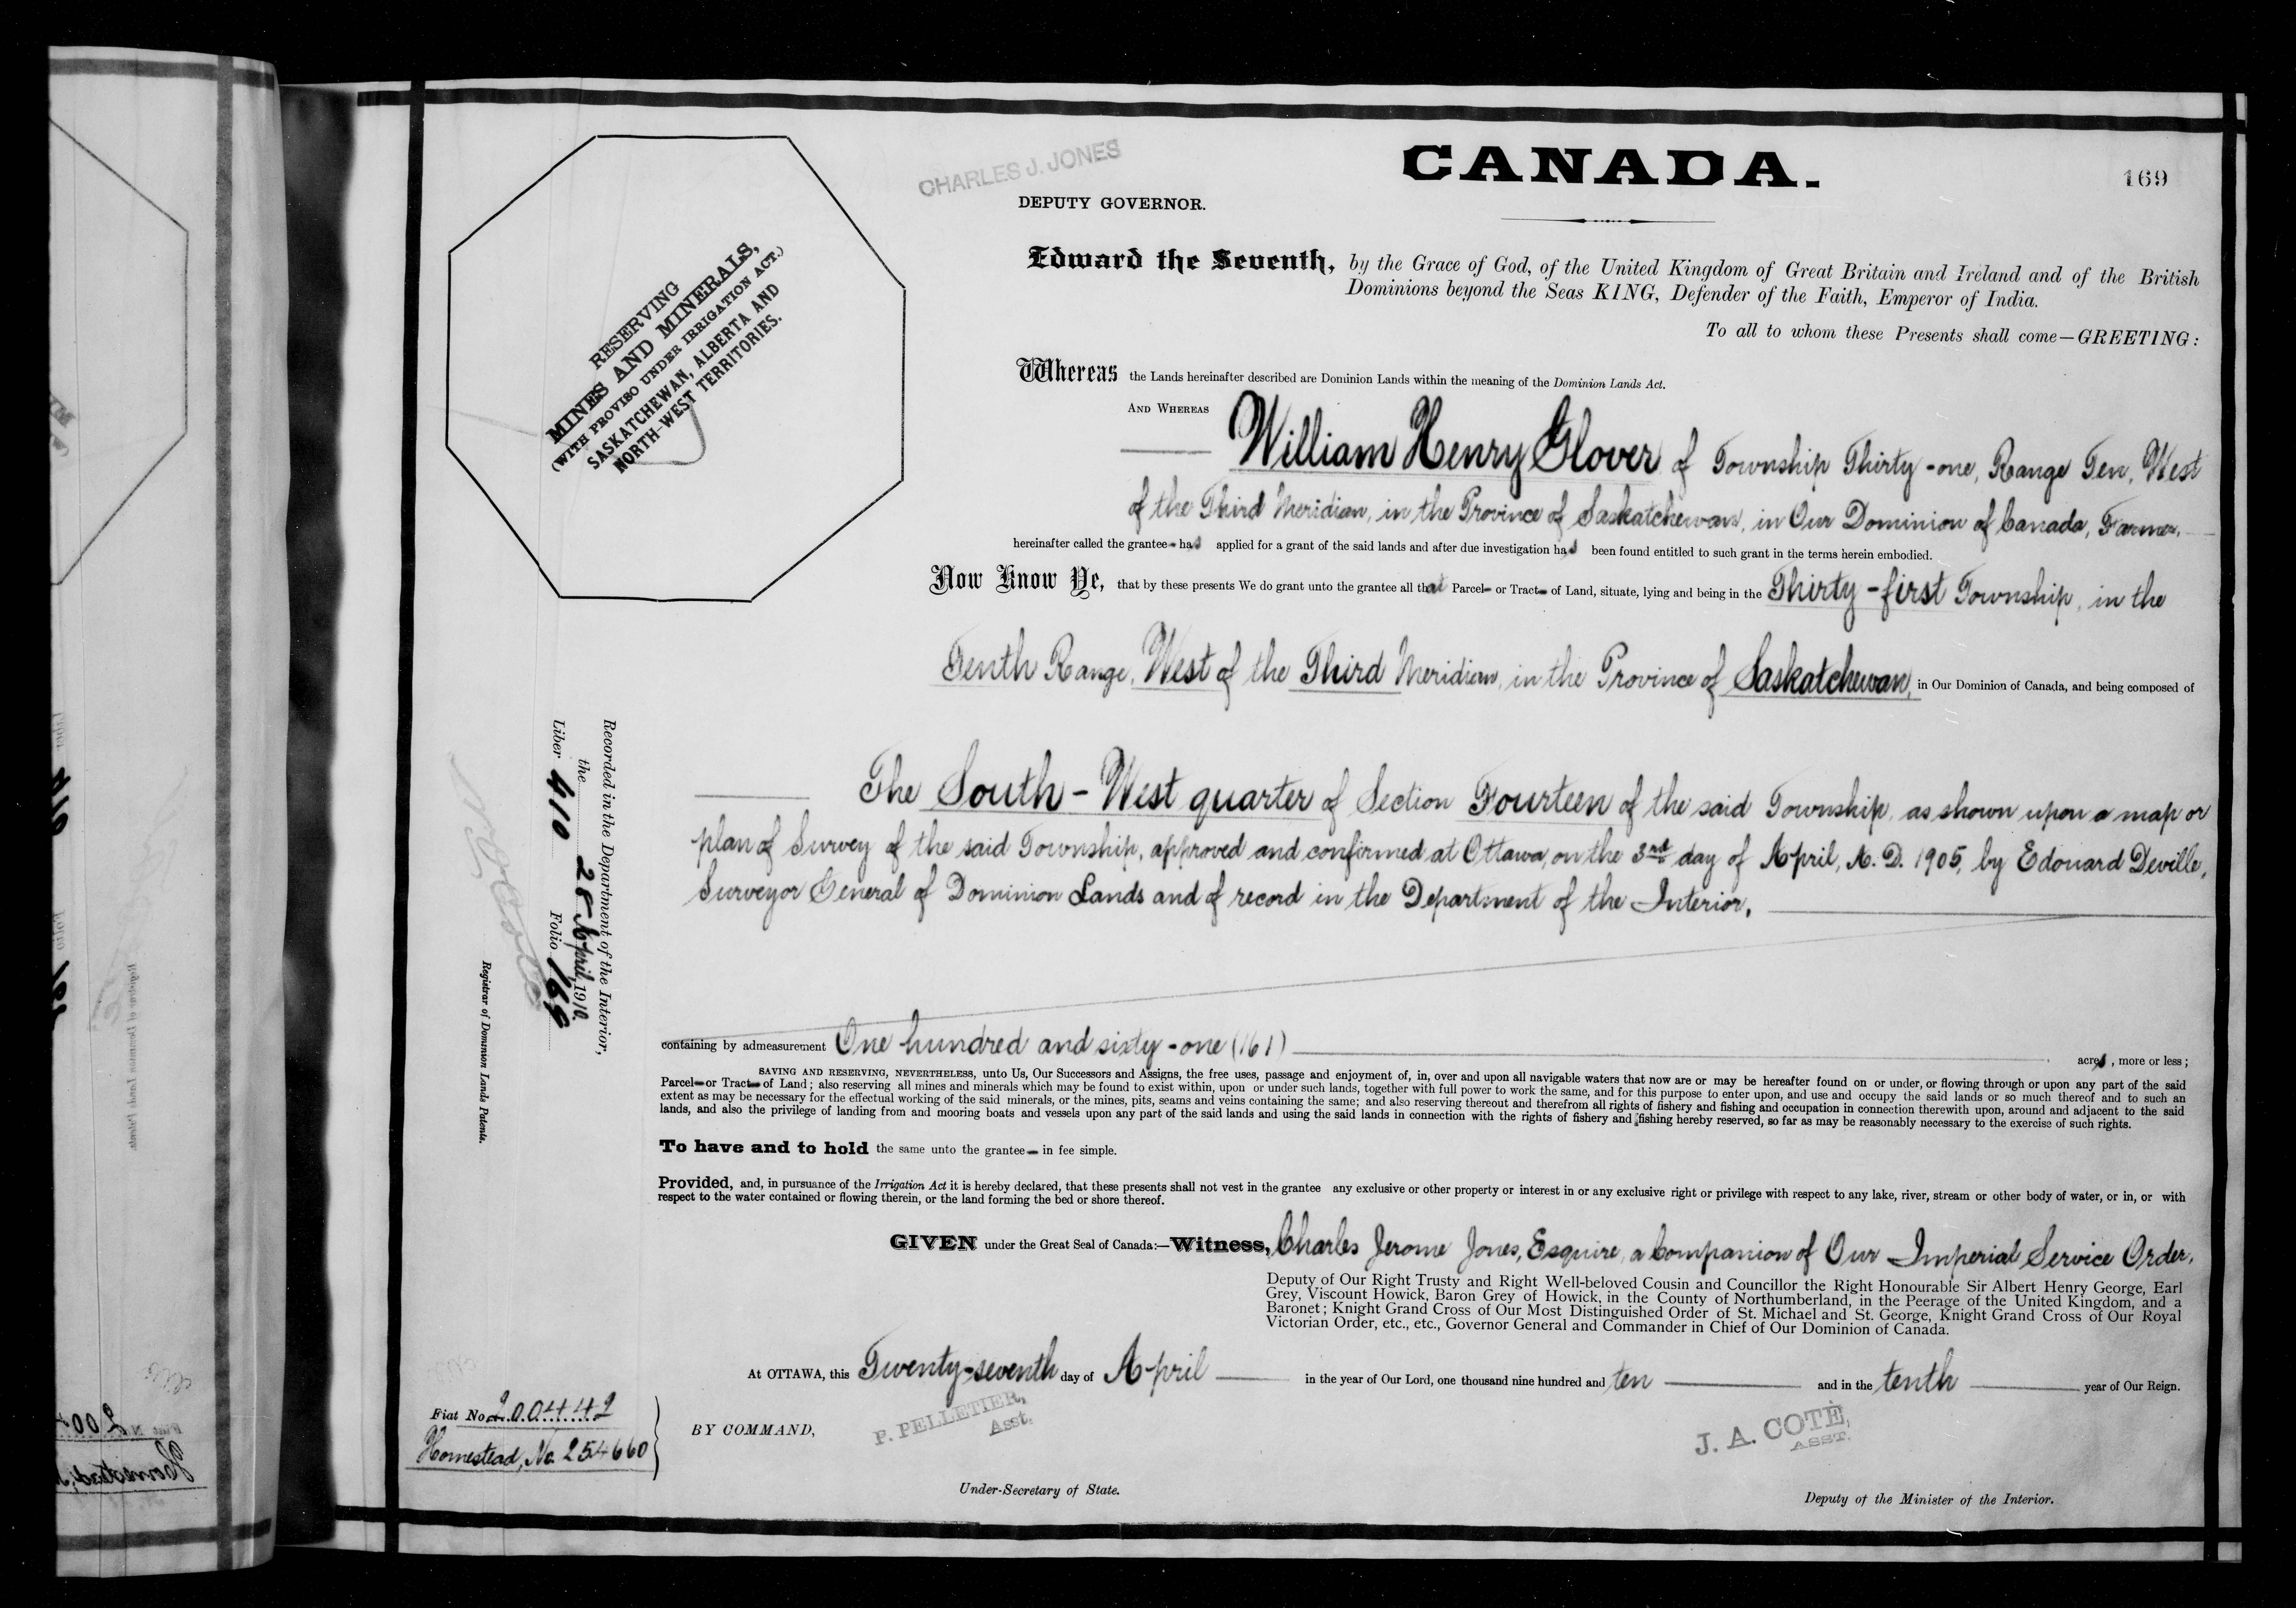 CHARLES J. JONES
CANADA.
169
DEPUTY GOVERNOR.
RESERVING
MINES AND MINERALS,
(WITH PROVISO UNDER IRRIGATION ACT.)
SASKATCHEWAN, ALBERTA AND
NORTH-WEST TERRITORIES.
Edward the Seventh, by the Grace of God, of the United Kingdom of Great Britain and Ireland and of the British
Dominions beyond the Seas KING, Defender of the Faith, Emperor of India.
To all to whom these Presents shall come—GREETING:
Whereas the Lands hereinafter described are Dominion Lands within the meaning of the Dominion Lands Act.
AND WHEREAS
William Henry Glover of Township Thirty-one, Range Ten, West
of the Third Meridian, in the Province of Saskatchewan, in Our Dominion of Canada, Farmer,
hereinafter called the grantee has applied for a grant of the said lands and after due investigation has been found entitled to such grant in the terms herein embodied.
Now Know Ye, that by these presents We do grant unto the grantee all that Parcel or Tract of Land, situate, lying and being in the Thirty-first Township, in the
Tenth Range, West of the Third Meridian, in the Province of Saskatchewan, in Our Dominion of Canada, and being composed of
The South-West quarter of Section Fourteen of the said Township, as shown upon a map or
plan of Survey of the said Township, approved and confirmed at Ottawa, on the 3rd day of April, A. D. 1905, by Edouard Deville,
Surveyor General of Dominion Lands and of record in the Department of the Interior,
Recorded in the Department of the Interior,
the 28 April, 1910.
Liber 410 Folio 169
Registrar of Dominion Lands Patents.
containing by admeasurement One hundred and sixty-one (161) acres, more or less;
SAVING AND RESERVING, NEVERTHELESS, unto Us, Our Successors and Assigns, the free uses, passage and enjoyment of, in, over and upon all navigable waters that now are or may be hereafter found on or under, or flowing through or upon any part of the said
Parcel or Tract of Land; also reserving all mines and minerals which may be found to exist within, upon or under such lands, together with full power to work the same, and for this purpose to enter upon, and use and occupy the said lands or so much thereof and to such an
extent as may be necessary for the effectual working of the said minerals, or the mines, pits, seams and veins containing the same; and also reserving thereout and therefrom all rights of fishery and fishing and occupation in connection therewith upon, around and adjacent to the said
lands, and also the privilege of landing from and mooring boats and vessels upon any part of the said lands and using the said lands in connection with the rights of fishery and fishing hereby reserved, so far as may be reasonably necessary to the exercise of such rights.
To have and to hold the same unto the grantee in fee simple.
Provided, and, in pursuance of the Irrigation Act it is hereby declared, that these presents shall not vest in the grantee any exclusive or other property or interest in or any exclusive right or privilege with respect to any lake, river, stream or other body of water, or in, or with
respect to the water contained or flowing therein, or the land forming the bed or shore thereof.
GIVEN under the Great Seal of Canada:—Witness, Charles Jerome Jones, Esquire, a Companion of Our Imperial Service Order,
Deputy of Our Right Trusty and Right Well-beloved Cousin and Councillor the Right Honourable Sir Albert Henry George, Earl
Grey, Viscount Howick, Baron Grey of Howick, in the County of Northumberland, in the Peerage of the United Kingdom, and a
Baronet; Knight Grand Cross of Our Most Distinguished Order of St. Michael and St. George, Knight Grand Cross of Our Royal
Victorian Order, etc., etc., Governor General and Commander in Chief of Our Dominion of Canada.
At OTTAWA, this Twenty-seventh day of April in the year of Our Lord, one thousand nine hundred and ten and in the tenth year of Our Reign.
Fiat No. 200442
Homestead, No. 254660
BY COMMAND,
P. PELLETIER,
Asst.
J. A. COTÉ,
ASST.
Under-Secretary of State.
Deputy of the Minister of the Interior.